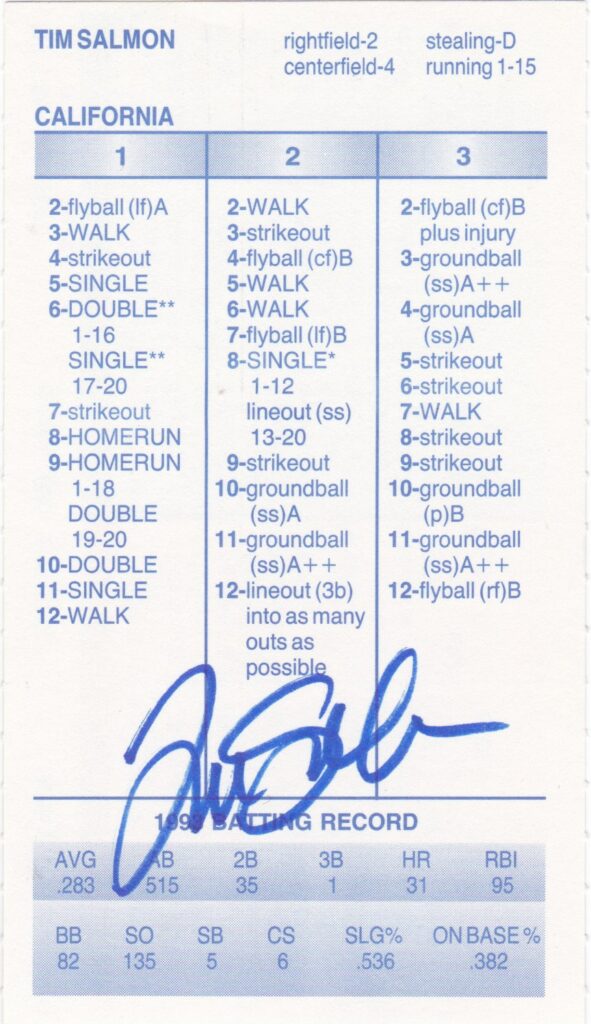 TIM SALMON
rightfield-2
centerfield-4
stealing-D
running 1-15
CALIFORNIA
1
2-flyball (lf)A
3-WALK
4-strikeout
5-SINGLE
6-DOUBLE**
1-16
SINGLE**
17-20
7-strikeout
8-HOMERUN
9-HOMERUN
1-18
DOUBLE
19-20
10-DOUBLE
11-SINGLE
12-WALK
2
2-WALK
3-strikeout
4-flyball (cf)B
5-WALK
6-WALK
7-flyball (lf)B
8-SINGLE*
1-12
lineout (ss)
13-20
9-strikeout
10-groundball
(ss)A
11-groundball
(ss)A++
12-lineout (3b)
into as many
outs as
possible
3
2-flyball (cf)B
plus injury
3-groundball
(ss)A++
4-groundball
(ss)A
5-strikeout
6-strikeout
7-WALK
8-strikeout
9-strikeout
10-groundball
(p)B
11-groundball
(ss)A++
12-flyball (rf)B
1993 BATTING RECORD
AVG AB 2B 3B HR RBI
.283 515 35 1 31 95
BB SO SB CS SLG% ON BASE %
82 135 5 6 .536 .382